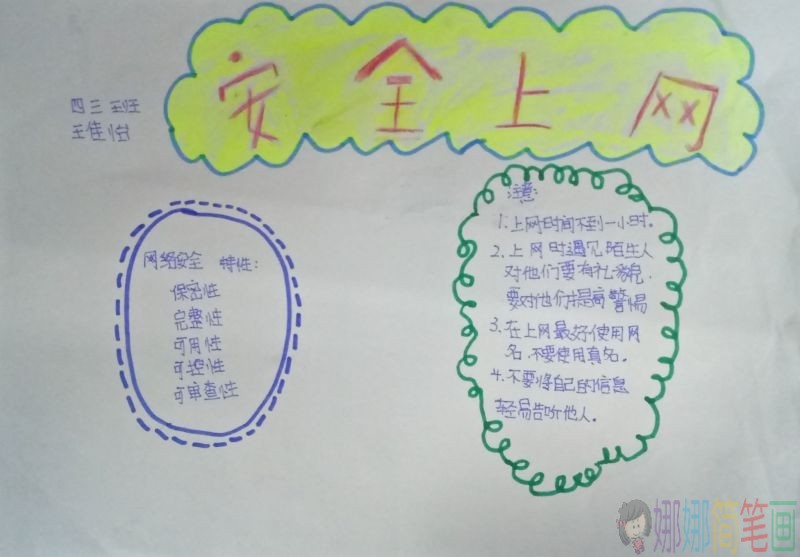 安全上网
四三班
王佳怡
网络安全 特性：
保密性
完整性
可用性
可控性
可审查性
注意：
1.上网时间不到一小时。
2.上网时遇见陌生人
对他们要有礼貌，
要对他们提高警惕
3.在上网最好使用网
名，不要使用真名。
4.不要将自己的信息
轻易告听他人。
娜娜简笔画